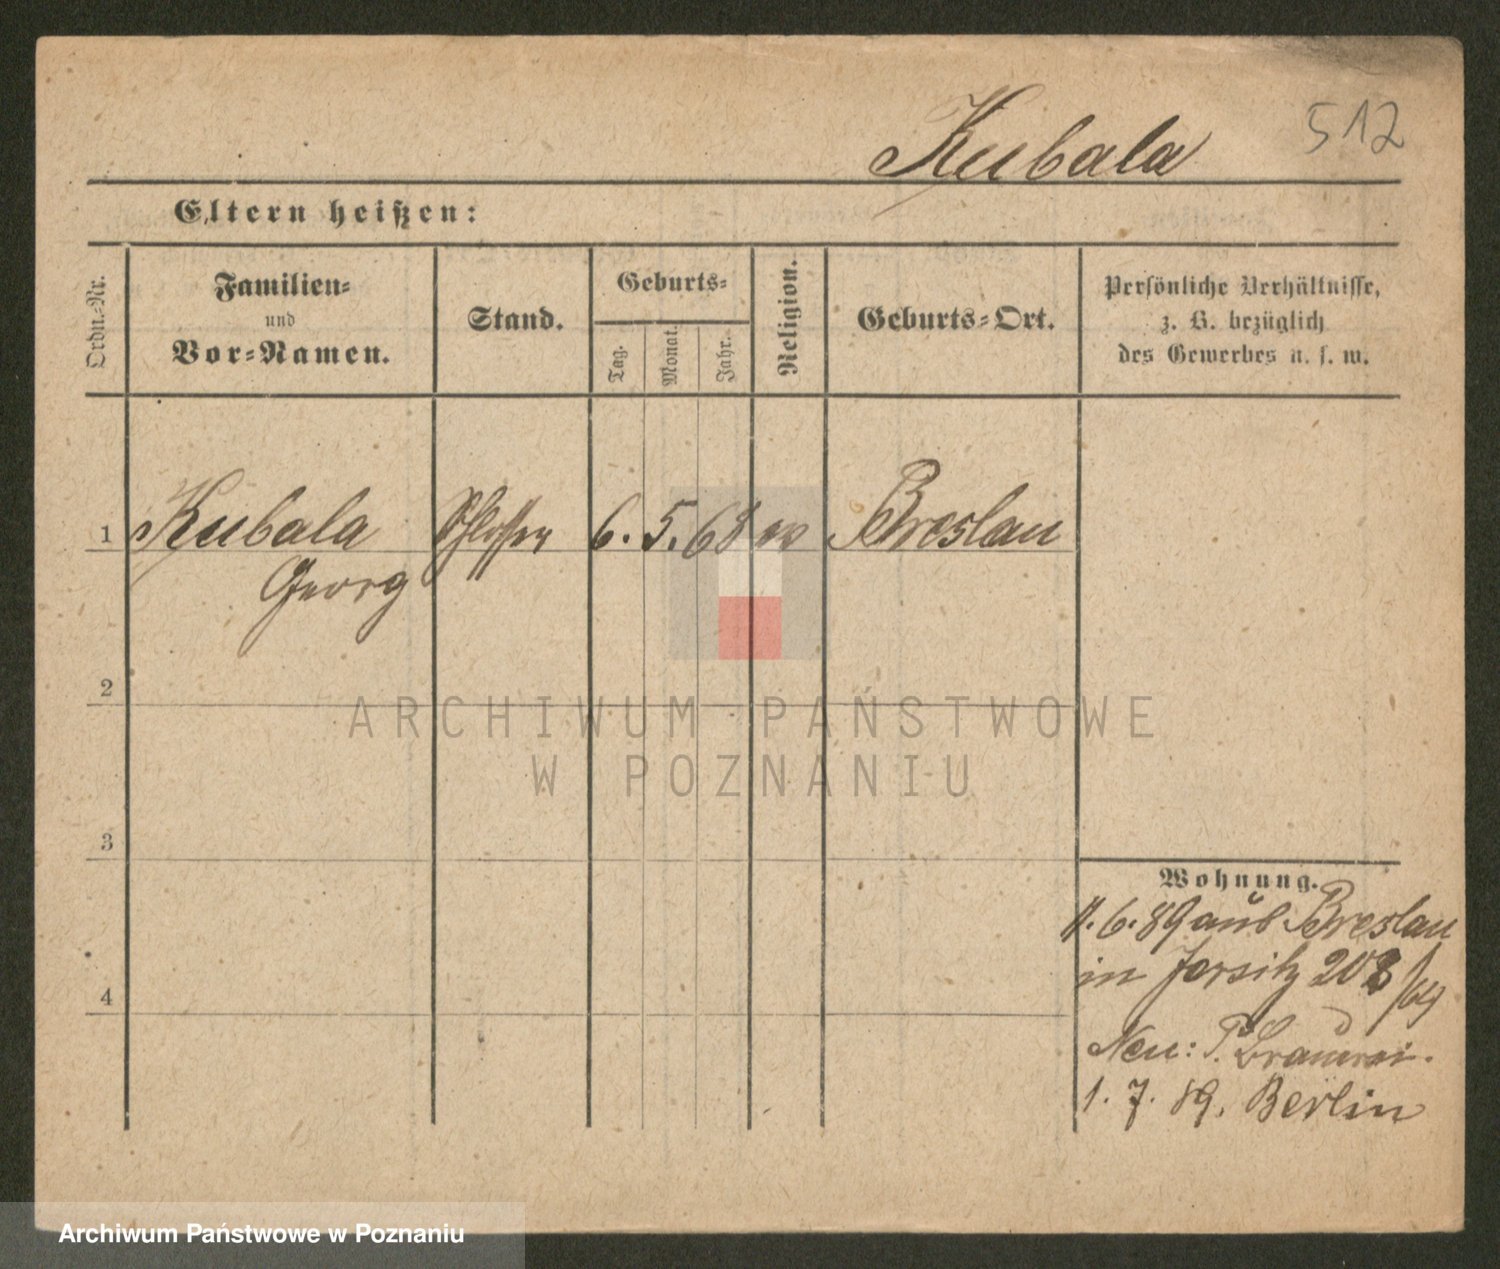 Kubala 512
Eltern heißen:
Ordn.-Nr.
Familien-
und
Vor-Namen.
Stand.
Geburts-
Tag.
Monat.
Jahr.
Religion.
Geburts-Ort.
Persönliche Verhältnisse,
z. B. bezüglich
des Gewerbes u. s. w.
1 Kubala Schlosser 6. 5. 68 Breslau
Georg
2
3
4
Wohnung.
6. 89 aus Breslau
in Jersitz
Neu:
1. 7. 89. Berlin
ARCHIWUM PAŃSTWOWE
W POZNANIU
Archiwum Państwowe w Poznaniu